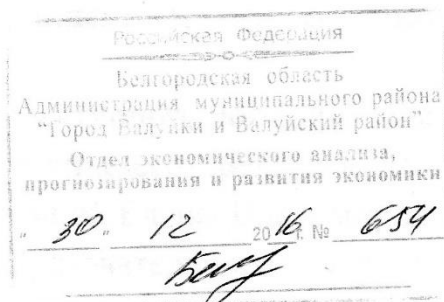 Российская Федерация
Белгородская область
Администрация муниципального района
"Город Валуйки и Валуйский район"
Отдел экономического анализа,
прогнозирования и развития экономики
" 30 " 12 2016 г. № 654